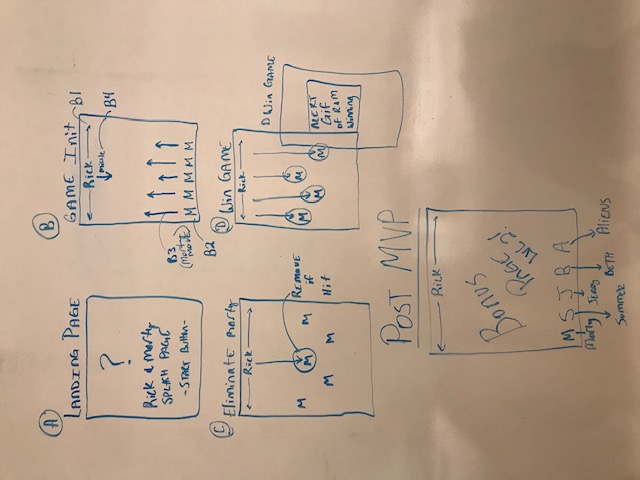 A
LANDING PAGE
?
Rick & Morty
SPLASH PAGE
-START Button-
B
GAME Init
B1
Rick
missle
B4
B3
(Morty move)
M M M M M
B2
C
Eliminate Morty
Rick
M M M
M M
REMOVE
if
Hit
D
Win GAME
Rick
M M M M
D Win GAME
ALERT
Gif
OF R&M
Winning
POST MVP
Rick
BONUS
PAGE
LVL 2!
M S J B A
Morty
Summer
JERRY
BETH
Aliens